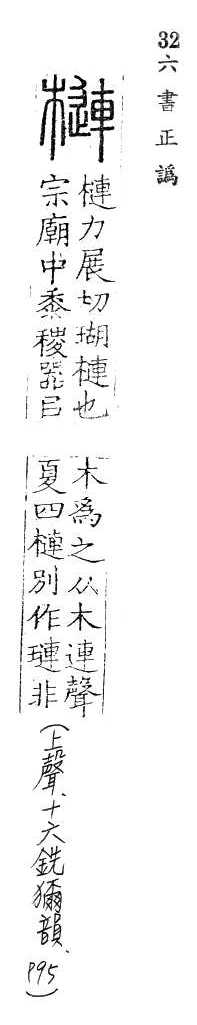 32 六書正譌
槤
槤力展切瑚槤也
宗廟中黍稷器㠯
木爲之从木連聲
夏四槤別作璉非
(上聲、十六銑獮韻、P95)